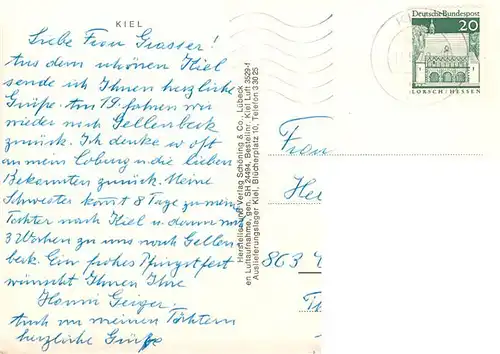 KIEL
Liebe Frau Grasser!
Aus dem schönen Kiel
sende ich Ihnen herzliche
Grüße. Am 19. fahren wir
wieder nach Gellenbeck
zurück. Ich denke so oft
an mein Coburg u die lieben
Bekannten zurück. Meine
Schwester kommt 8 Tage zu meiner
Tochter nach Kiel u dann auf
3 Wochen zu uns nach Gellen
beck. Ein frohes Pfingstfest
wünscht Ihnen Ihre
Hanni Geiger.
Auch von meinen Töchtern
herzliche Grüße
Herstellung und Verlag Schöning & Co., Lübeck
en Luftaufnahme, gen. SH 24494, Bestellnr. Kiel Luft 3529-1
Auslieferungslager Kiel, Blücherplatz 10, Telefon 3 30 25
Deutsche Bundespost
20
LORSCH/HESSEN
Frau
863